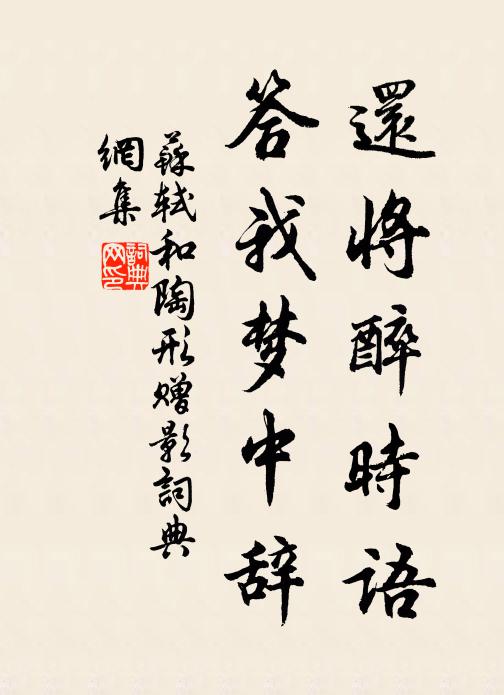 還將醉時語
答我梦中辞
蘇軾和陶形赠影詞典
網集
詞典網印